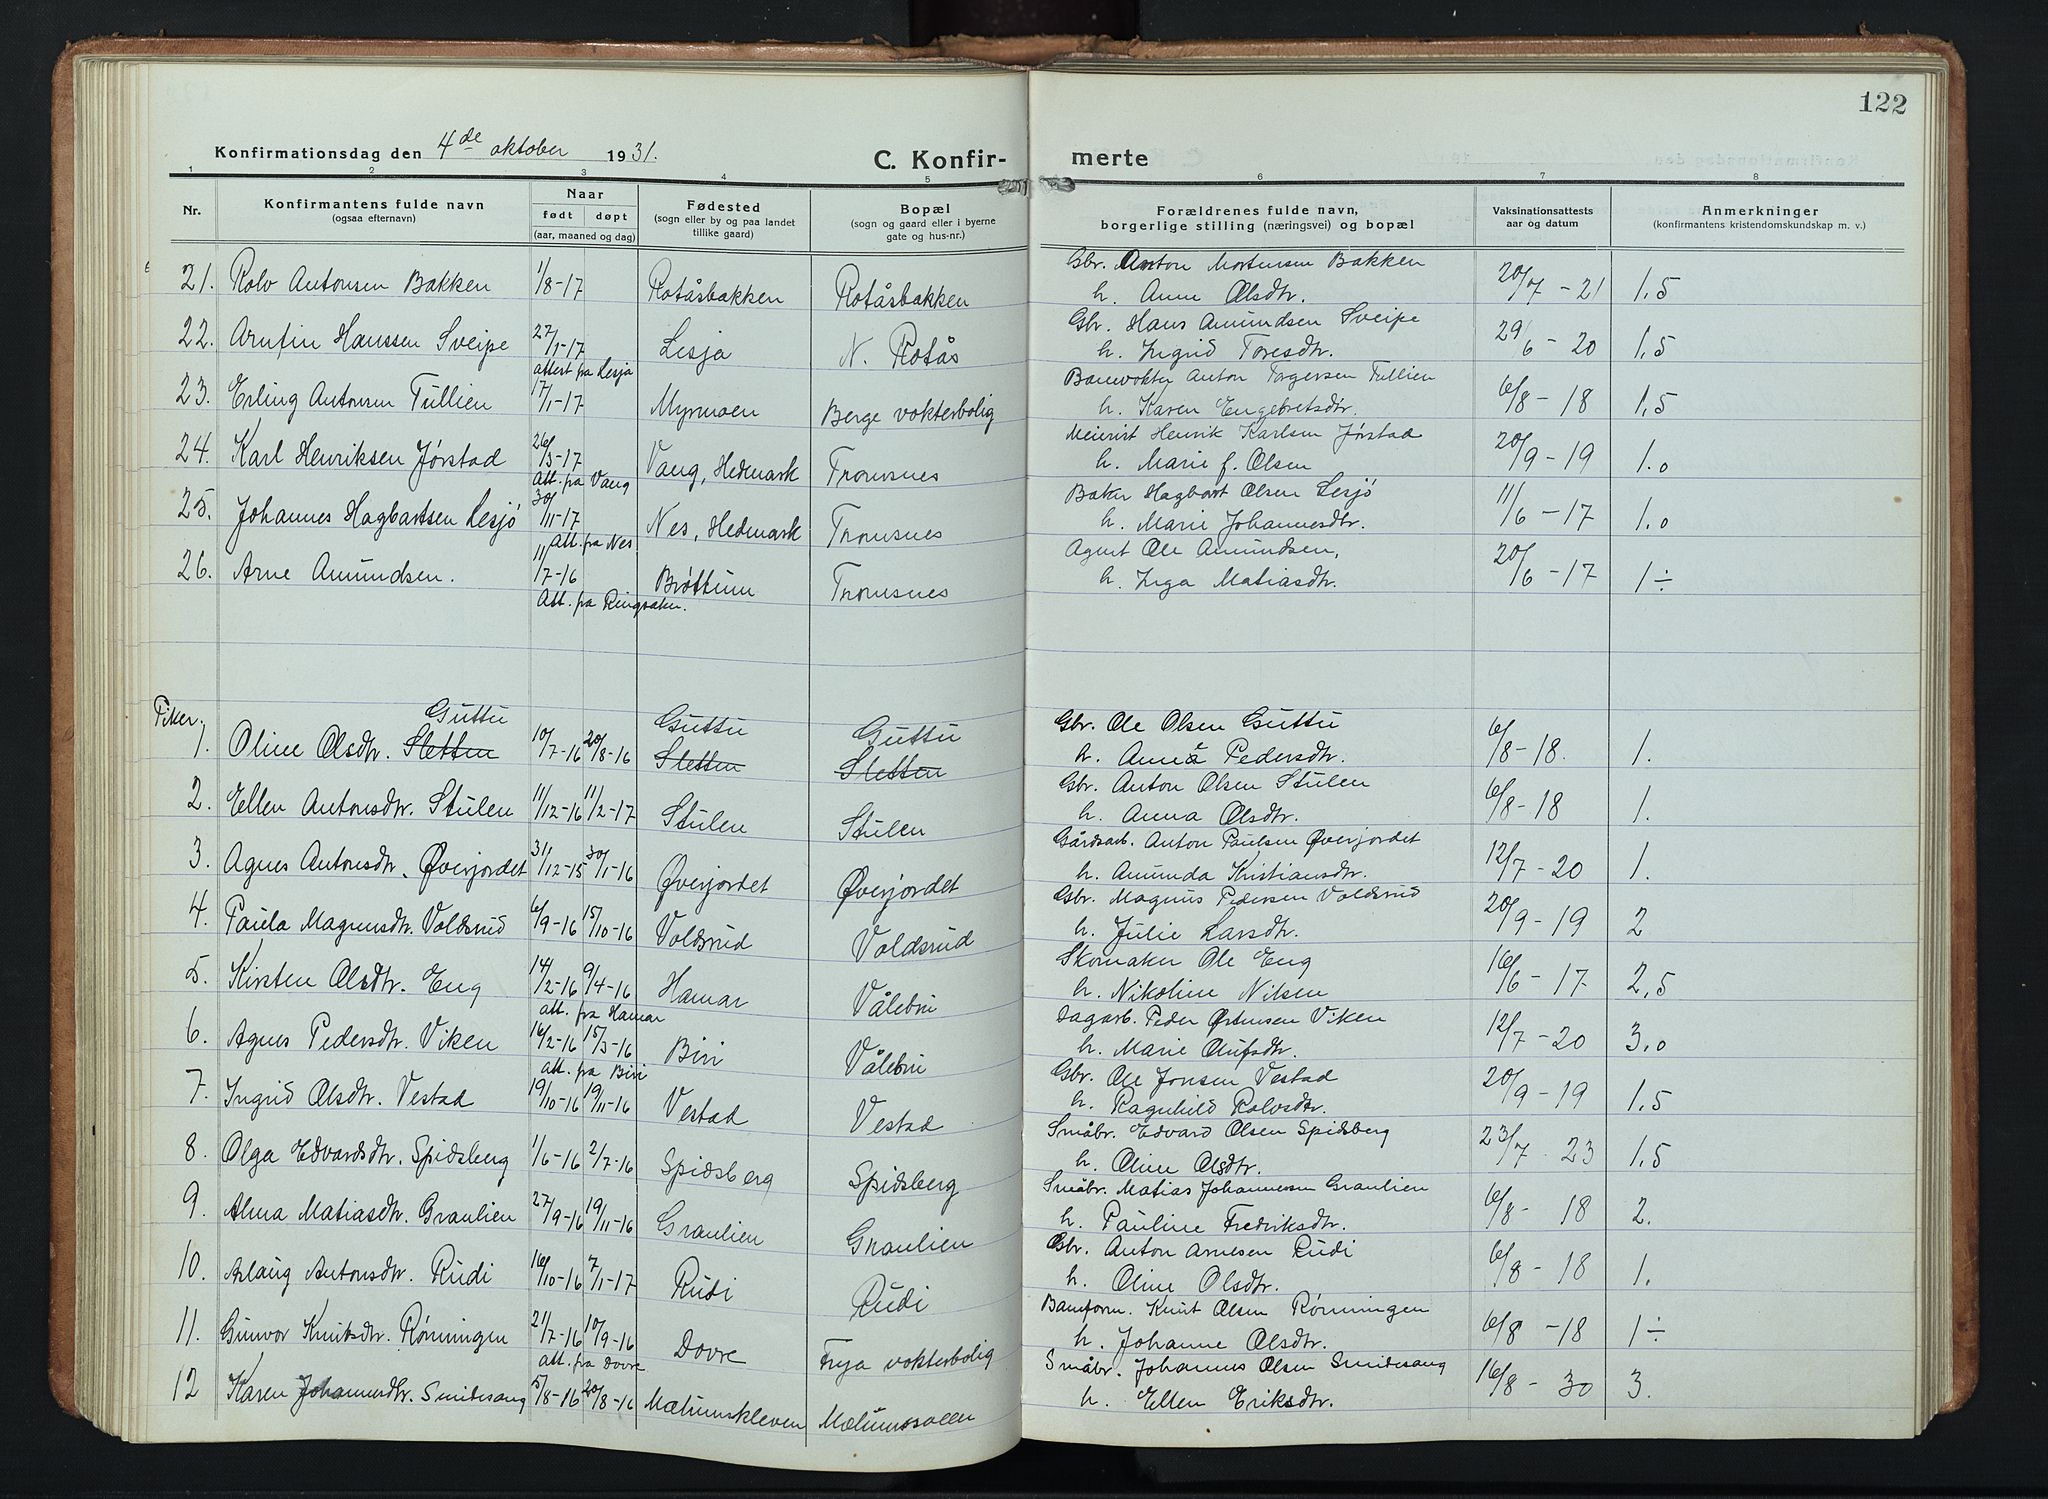 122
Konfirmationsdag den 4de oktober 1931.
C. Konfir- merte
1 2 3 4 5 6 7 8
Nr.
Konfirmantens fulde navn
(ogsaa efternavn)
Naar
født døpt
(aar, maaned og dag)
Fødested
(sogn eller by og paa landet
tillike gaard)
Bopæl
(sogn og gaard eller i byerne
gate og hus-nr.)
Forældrenes fulde navn,
borgerlige stilling (næringsvei) og bopæl
Vaksinationsattests
aar og datum
Anmerkninger
(konfirmantens kristendomskundskap m. v.)
21. Rolv Antonsen Bakken 1/8-17 Rotåsbakken Rotåsbakken Gbr. Anton Mortensen Bakken 20/7-21 1,5
h. Anne Olsdtr.
22. Arnfin Hanssen Sveipe 27/1-17 Lesja N. Rotås Gbr. Hans Amundsen Sveipe 29/6-20 1,5
attest fra Lesja h. Ingrid Toresdtr.
23. Erling Antonsen Tullien 17/1-17 Myrmoen Berge vokterbolig Banevokter Anton Torgersen Tullien 6/8-18 1,5
h. Karen Engebretsdtr.
24. Karl Henriksen Jørstad 26/3-17 Vang, Hedmark Tromsnes Meierist Henrik Karlsen Jørstad 20/9-19 1.0
Att. fra Vang h. Marie f. Olsen
25. Johannes Hagbartsen Lesjø 30/11-17 Nes, Hedmark Tromsnes Baker Hagbart Olsen Lesjø 11/6-17 1.0
Att. fra Nes h. Marie Johannesdtr.
26. Arne Amundsen. 11/7-16 Brøttum Tromsnes Agent Ole Amundsen, 20/6-17 1÷
Att. fra Ringsaker. h. Inga Matiasdtr.
Piker.
Guttu Guttu Guttu
1. Oline Olsdtr. Sletten 10/7-16 20/8-16 Sletten Sletten Gbr. Ole Olsen Guttu 6/8-18. 1.
h. Anne Pedersdtr.
2. Ellen Antonsdtr. Stulen 11/12-16 11/2-17 Stulen Stulen Gbr. Anton Olsen Stulen 6/8-18 1.
h. Anna Olsdtr.
3. Agnes Antonsdtr. Øverjordet 31/12-15 30/1-16 Øverjordet Øverjordet Gårdsarb. Anton Paulsen Øverjordet 12/7-20 1.
h. Amunda Kristiansdtr.
4. Paula Magnusdtr. Voldsrud 6/9-16 15/10-16 Voldsrud Voldsrud Gbr. Magnus Pedersen Voldsrud 20/9-19 2
h. Julie Larsdtr.
5 Kirsten Olsdtr. Eng 14/2-16 9/4-16 Hamar Vålebru Skomaker Ole Eng 16/6-17 2,5
att. fra Hamar h. Nikoline Nilsen
6. Agnes Pedersdtr. Viken 16/2-16 15/3-16 Biri Vålebru Dagarb. Peder Østensen Viken 12/7-20 3.0
att. fra Biri h. Marie Olufsdtr.
7. Ingrid Olsdtr. Vestad 19/10-16 19/11-16 Vestad Vestad Gbr. Ole Jonsen Vestad 20/9-19 1,5
h. Ragnhild Rolvsdtr.
8. Olga Edvardsdtr. Spidsberg 1/6-16 2/7-16 Spidsberg Spidsberg Småbr. Edvard Olsen Spidsberg 23/7-23 1,5
h. Oline Olsdtr.
9. Alma Matiasdtr. Graulien 27/9-16 19/11-16 Graulien Graulien Småbr. Matias Johannesen Graulien 6/8-18 2.
h. Pauline Fredriksdtr.
10. Aslaug Antonsdtr. Rudi 16/10-16 7/1-17 Rudi Rudi Gbr. Anton Arnesen Rudi 6/8-18 1.
h. Oline Olsdtr.
11. Gunvor Knutsdtr. Rønningen 21/7-16 10/9-16 Dovre Frya vokterbolig Baneform. Knut Olsen Rønningen 6/8-18 1÷
att. fra Dovre h. Johanne Olsdtr.
12 Karen Johannesdtr. Smidesang 5/8-16 20/8-16 Mælumskleven Mælumssveen Småbr. Johannes Olsen Smidesang 16/8-30 3.
h. Ellen Eriksdtr.